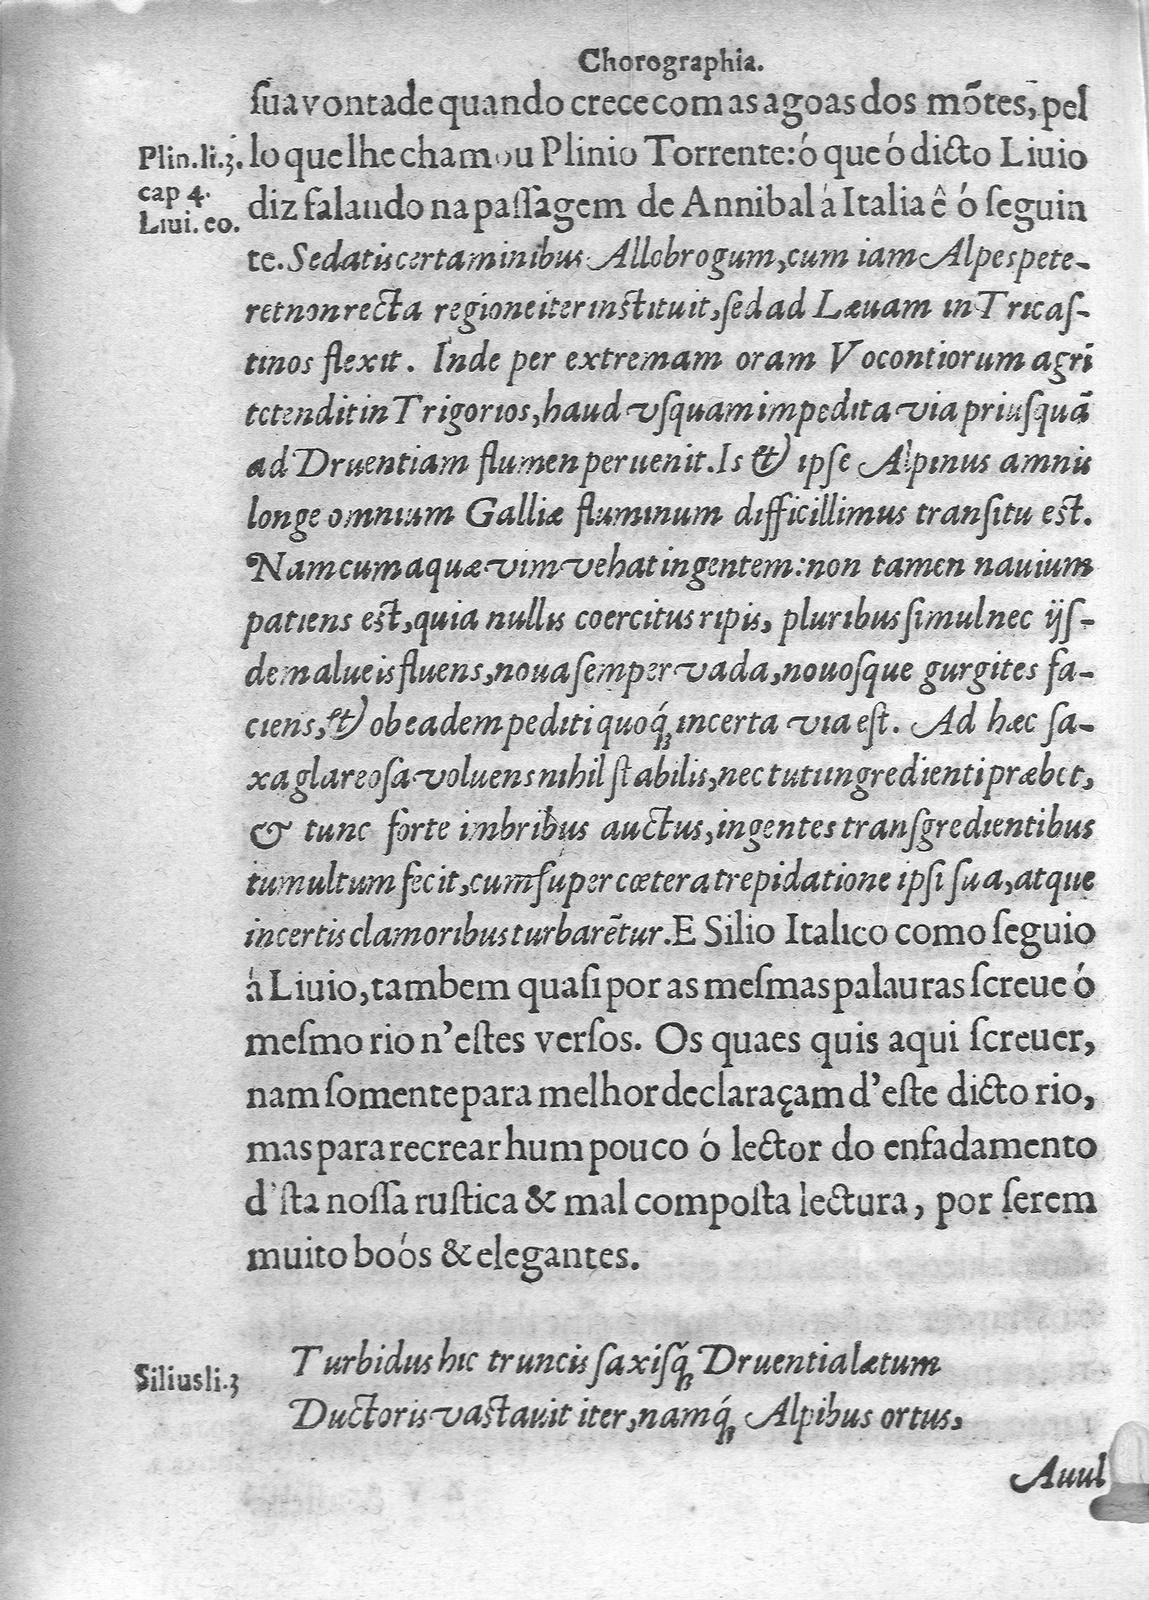 Chorographia.
ſua vontade quando crece com as agoas dos mõtes, pel
Plin.li.3. lo que lhe chamou Plinio Torrente: ó que ó dicto Liuio
cap 4.
Liui. eo. diz falando na paſſagem de Annibal á Italia ê ó ſeguin
te. Sedatis certaminibus Allobrogum, cum iam Alpes pete-
ret non recta regione iter inſtituit, ſed ad Læuam in Tricaſ-
tinos flexit. Inde per extremam oram Vocontiorum agri
tetendit in Trigorios, haud vſquam impedita via priuſquã
ad Druentiam flumen peruenit. Is & ipſe Alpinus amnis
longe omnium Galliæ fluminum difficillimus tranſitu eſt.
Nam cum aquæ vim vehat ingentem: non tamen nauium
patiens eſt, quia nullis coercitus ripis, pluribus ſimul nec ijſ-
dem alueis fluens, noua ſemper vada, nouoſque gurgites fa-
ciens, & ob eadem pediti quoq́; incerta via eſt. Ad hæc ſa-
xa glareoſa voluens nihil ſtabilis, nec tuti ingredienti præbet,
& tunc forte imbribus auctus, ingentes tranſgredientibus
tumultum fecit, cum ſuper cœtera trepidatione ipſi ſua, atque
incertis clamoribus turbarẽtur. E Silio Italico como ſeguio
á Liuio, tambem quaſi por as meſmas palauras ſcreue ó
meſmo rio n'eſtes verſos. Os quaes quis aqui ſcreuer,
nam ſomente para melhor declaraçam d'eſte dicto rio,
mas para recrear hum pouco ó lector do enfadamento
d'ſta noſſa ruſtica & mal compoſta lectura, por ſerem
muito boós & elegantes.
Turbidus hic truncis ſaxiſq́; Druentia lætum
Silius li.3
Ductoris vaſtauit iter, namq́; Alpibus ortus,
Auul